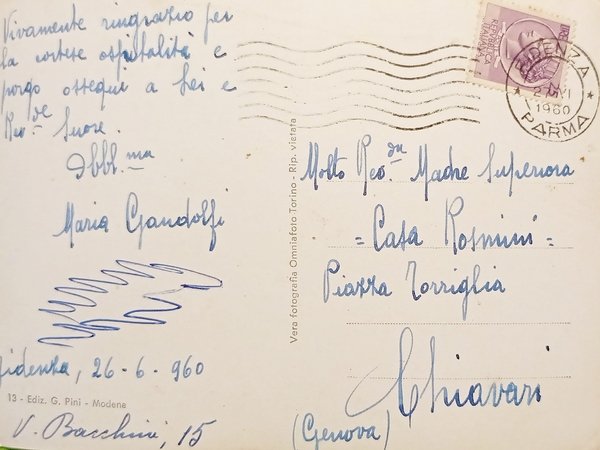 Vivamente ringrazio per
la cortese ospitalità e
porgo ossequi a Lei e
Rev.de Suore.
Obbl.ma
Maria Gandolfi
Fidenza, 26-6-960
13 - Ediz. G. Pini - Modena
V. Bacchini, 15
Vera fotografia Omniafoto Torino - Rip. vietata
REPUBBLICA
ITALIANA
FIDENZA
1960
PARMA
Molto Rev.da Madre Superiora
= Casa Rosmini =
Piazza Torriglia
Chiavari
(Genova)